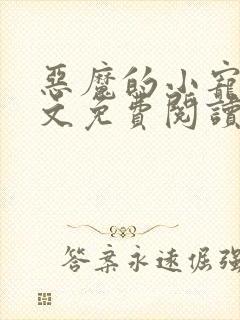 惡魔的小寵
文免費閱讀
答案永遠倔強